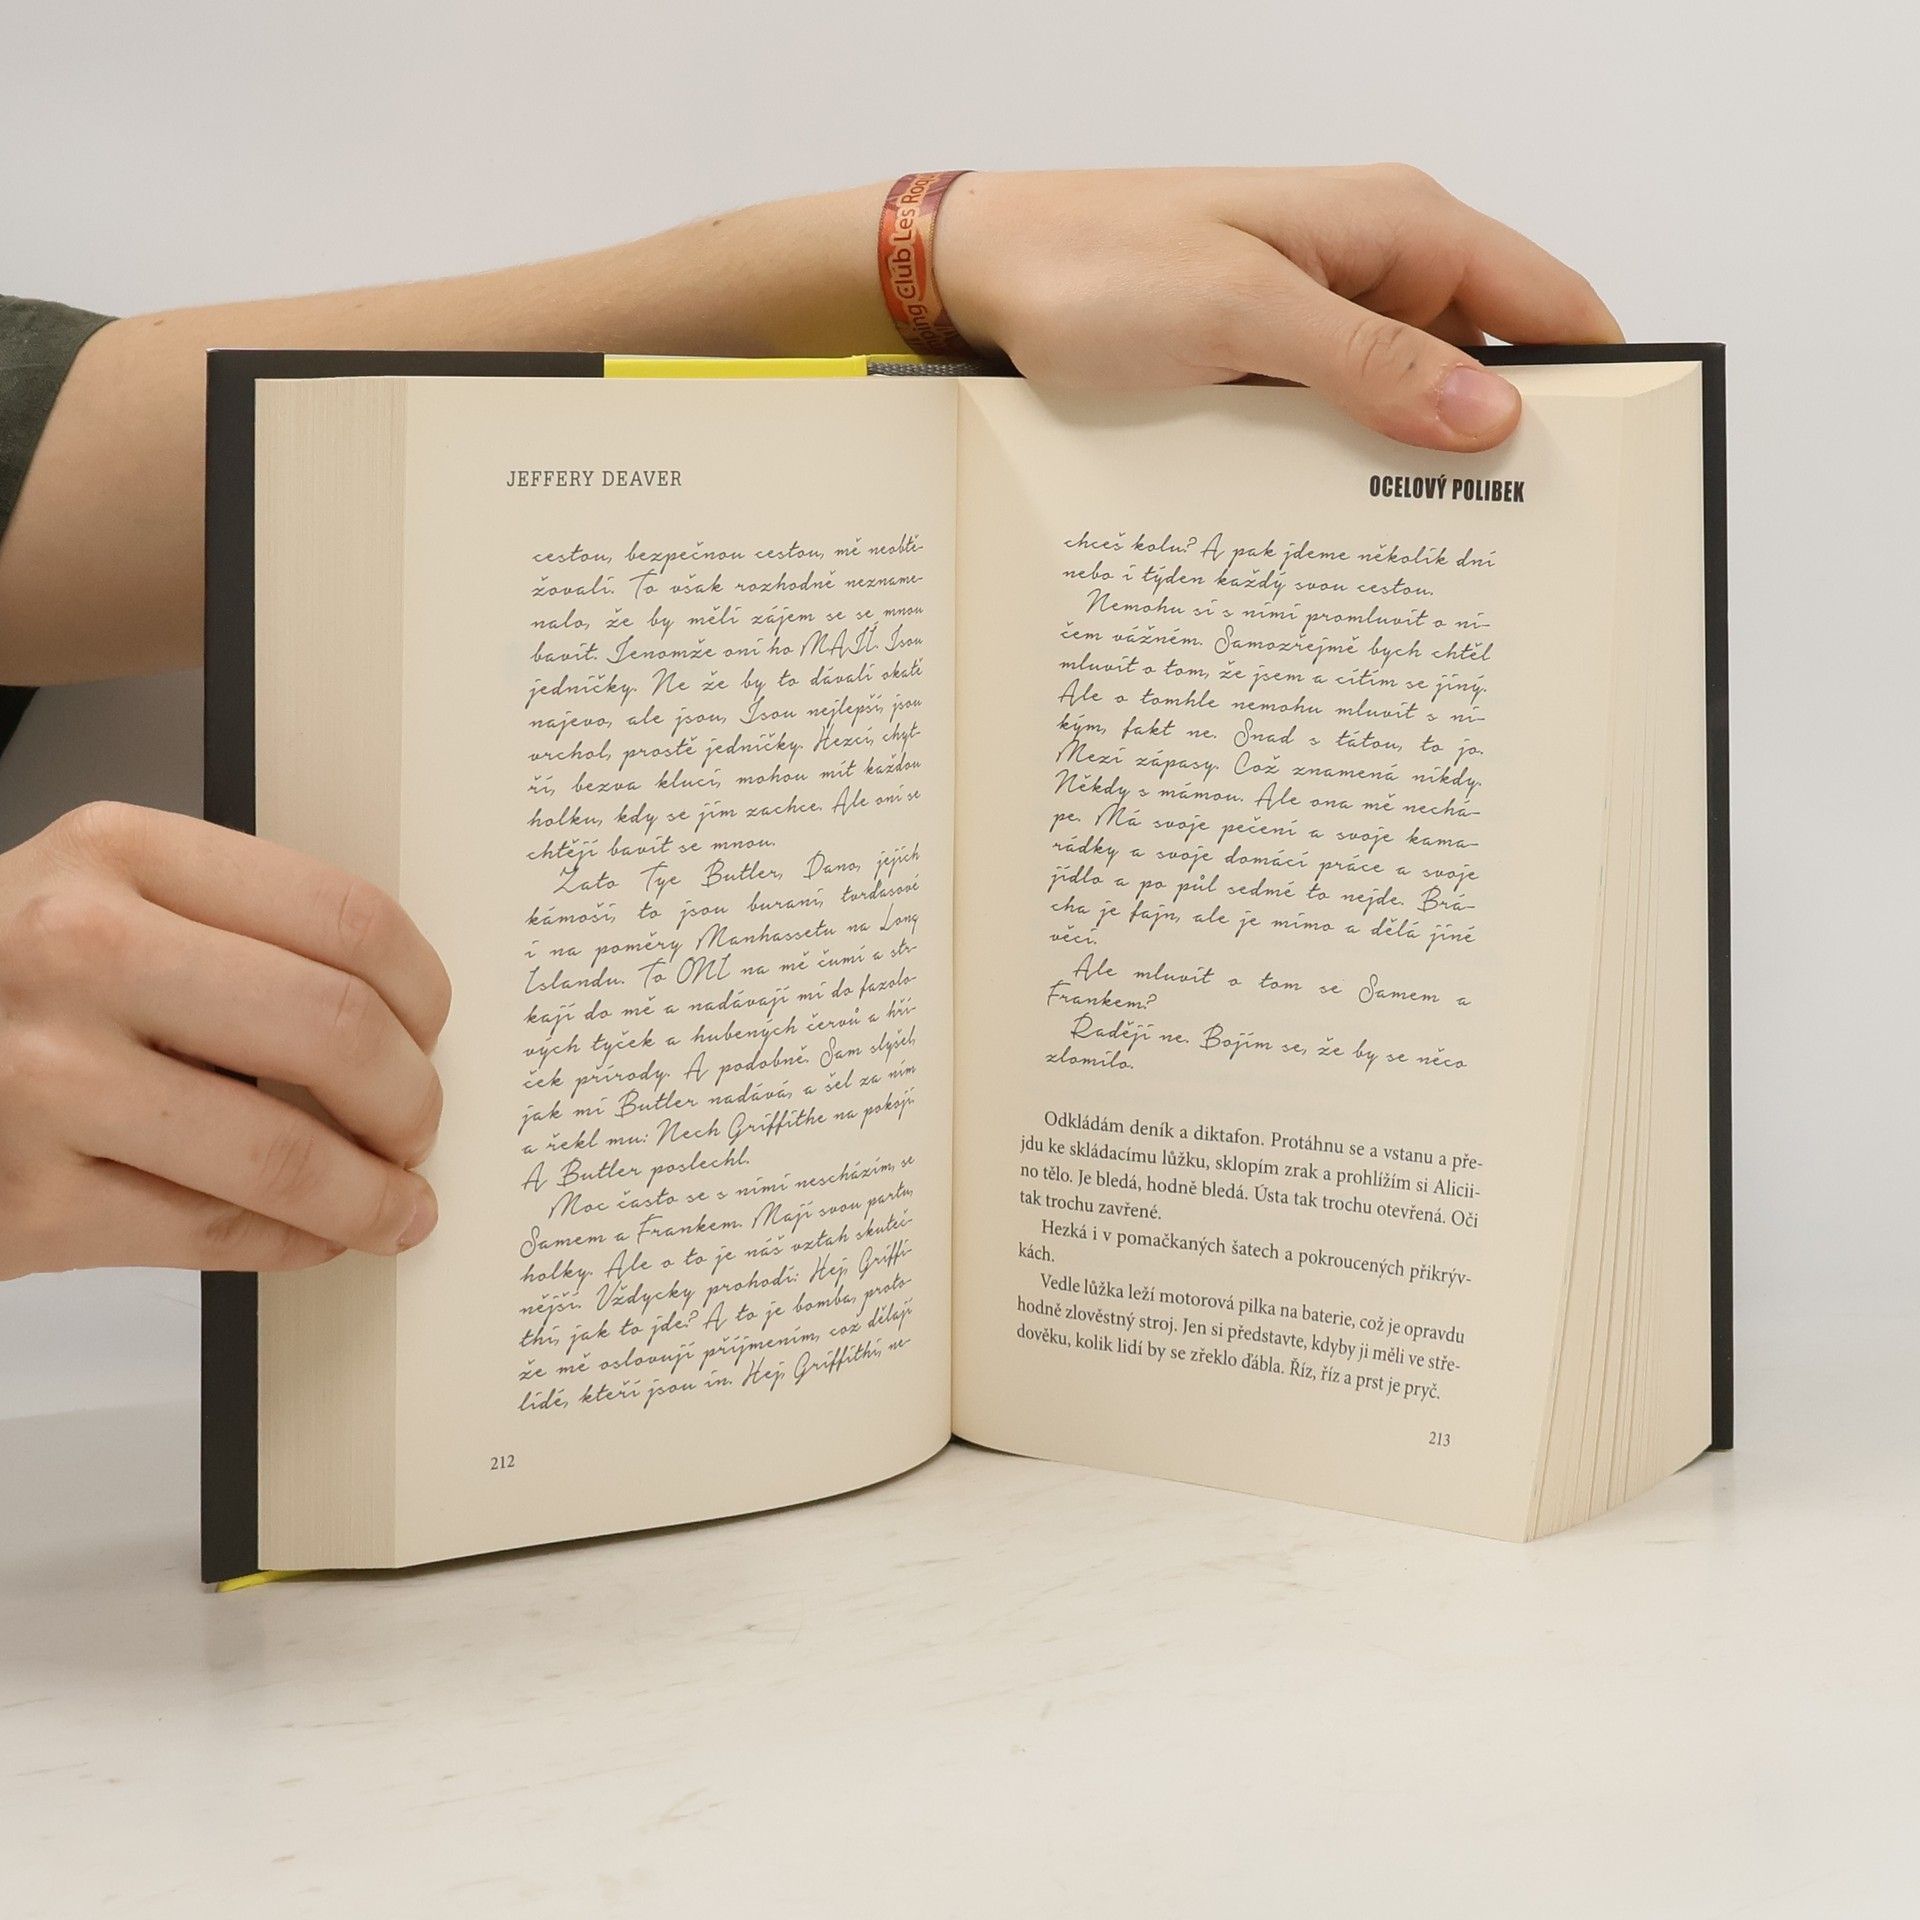 Clúb Les Roq
JEFFERY DEAVER
cestou, bezpečnou cestou, mě neobtě-
žovali. To však rozhodně nezname-
nalo, že by měli zájem se se mnou
bavit. Jenomže oni ho MAJÍ. Jsou
jedničky. Ne že by to dávali okatě
najevo, ale jsou. Jsou nejlepší, jsou
vrchol, prostě jedničky. Hezcí, chyt-
ří, bezva kluci, mohou mít každou
holku, kdy se jim zachce. Ale oni se
chtějí bavit se mnou.
Zato Tye Butler, Dano, jejich
kámoši, to jsou burani, tvrďasové
i na poměry Manhassetu na Long
Islandu. To ONI na mě čumí a str-
kají do mě a nadávají mi do fazolo-
vých tyček a hubených červů a hří-
ček přírody. A podobně. Sam slyšel,
jak mi Butler nadává, a šel za ním
a řekl mu: Nech Griffithe na pokoji.
A Butler poslechl.
Moc často se s nimi nescházím, se
Samem a Frankem. Mají svou partu,
holky. Ale o to je náš vztah skuteč-
nější. Vždycky prohodí: Hej, Griffi-
thi, jak to jde? A to je bomba, proto-
že mě oslovují příjmením, což dělají
lidé, kteří jsou in. Hej, Griffithi, ne-
212
OCELOVÝ POLIBEK
chceš kolu? A pak jdeme několik dní
nebo i týden každý svou cestou.
Nemohu si s nimi promluvit o ni-
čem vážném. Samozřejmě bych chtěl
mluvit o tom, že jsem a cítím se jiný.
Ale o tomhle nemohu mluvit s ni-
kým, fakt ne. Snad s tátou, to jo.
Mezi zápasy. Což znamená nikdy.
Někdy s mámou. Ale ona mě nechá-
pe. Má svoje pečení a svoje kama-
rádky a svoje domácí práce a svoje
jídlo a po půl sedmé to nejde. Brá-
cha je fajn, ale je mimo a dělá jiné
věci.
Ale mluvit o tom se Samem a
Frankem?
Raději ne. Bojím se, že by se něco
zlomilo.
Odkládám deník a diktafon. Protáhnu se a vstanu a pře-
jdu ke skládacímu lůžku, sklopím zrak a prohlížím si Alicii-
no tělo. Je bledá, hodně bledá. Ústa tak trochu otevřená. Oči
tak trochu zavřené.
Hezká i v pomačkaných šatech a pokroucených přikrýv-
kách.
Vedle lůžka leží motorová pilka na baterie, což je opravdu
hodně zlověstný stroj. Jen si představte, kdyby ji měli ve stře-
dověku, kolik lidí by se zřeklo ďábla. Říz, říz a prst je pryč.
213